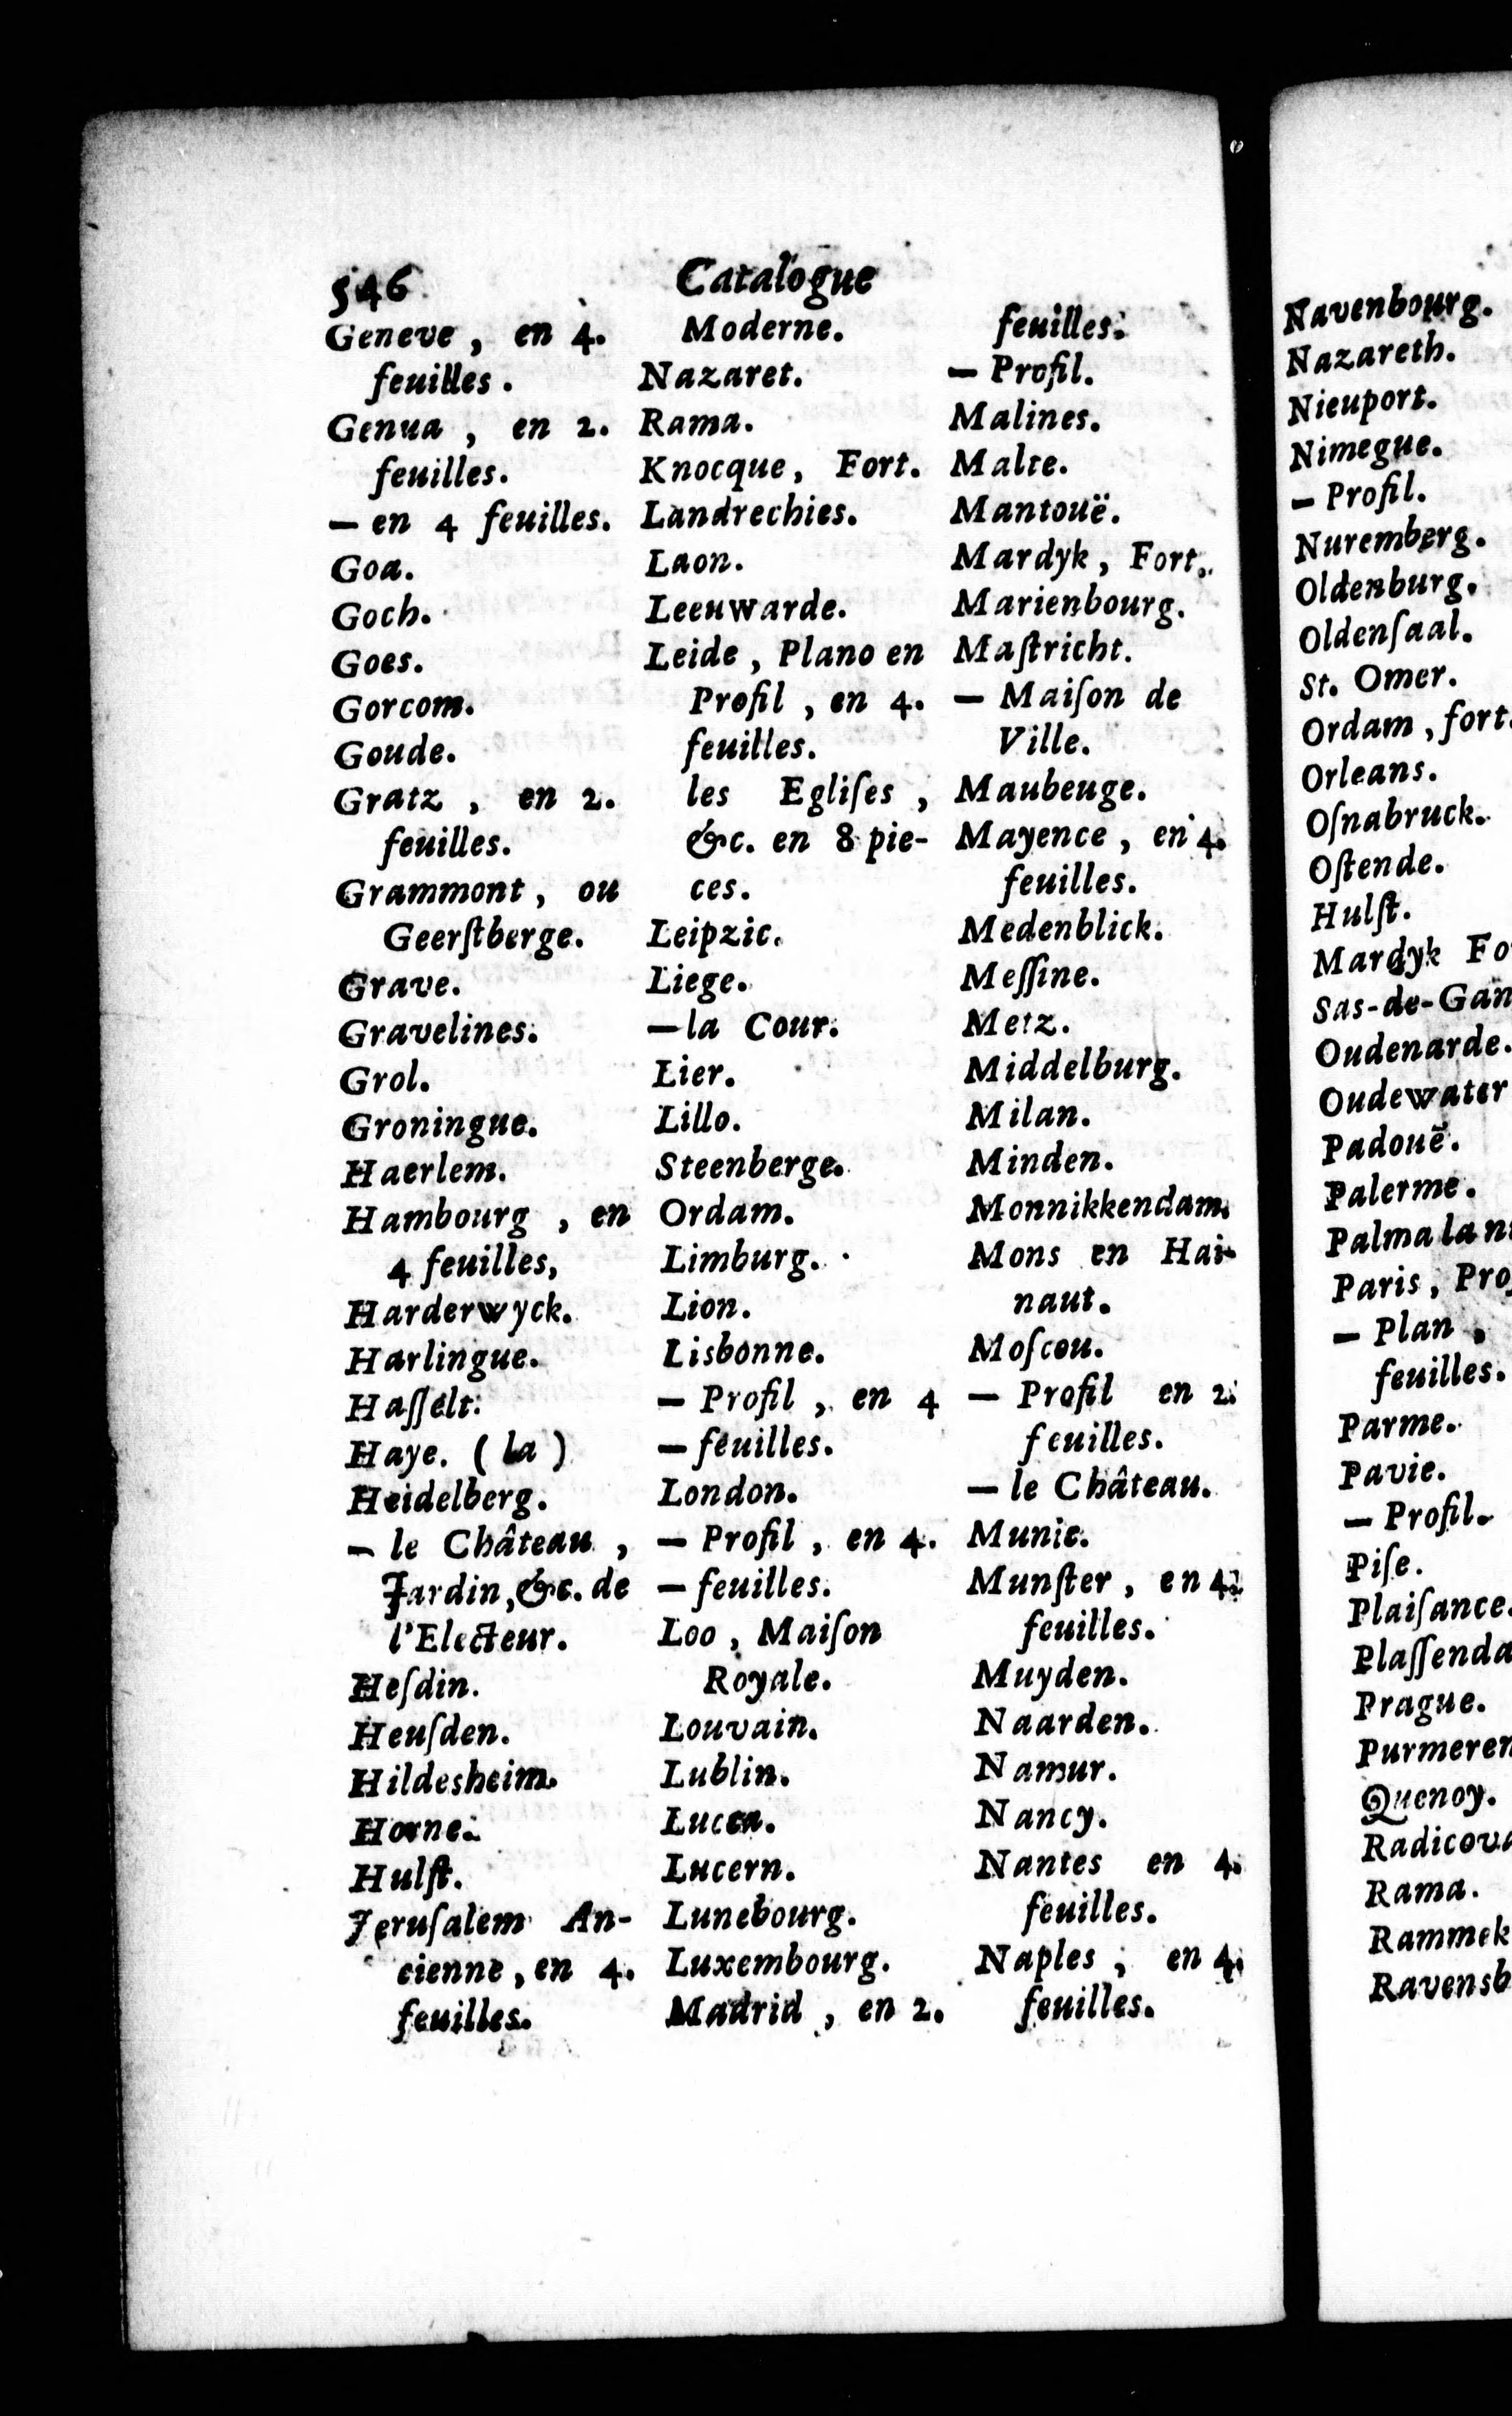 546
Catalogue
Geneve , en 4.
feuilles .
Genua , en 2.
feuilles.
— en 4 feuilles.
Goa.
Goch.
Goes.
Gorcom.
Goude.
Gratz , en 2.
feuilles.
Grammont , ou
Geerſtberge.
Grave.
Gravelines.
Grol.
Groningue.
Haerlem.
Hambourg , en
4 feuilles,
Harderwyck.
Harlingue.
Haſſelt.
Haye. ( la )
Heidelberg.
— le Château ,
Jardin, &c. de
l'Electeur.
Heſdin.
Heuſden.
Hildesheim.
Horne.
Hulſt.
Jeruſalem An-
cienne , en 4.
feuilles.
Moderne.
Nazaret.
Rama.
Knocque, Fort.
Landrechies.
Laon.
Leeuwarde.
Leide , Plano en
Profil , en 4.
feuilles.
les Egliſes ,
&c. en 8 pie-
ces.
Leipzic.
Liege.
— la Cour.
Lier.
Lillo.
Steenberge.
Ordam.
Limburg.
Lion.
Lisbonne.
— Profil , en 4
— feuilles.
London.
— Profil , en 4.
— feuilles.
Loo , Maiſon
Royale.
Louvain.
Lublin.
Lucca.
Lucern.
Lunebourg.
Luxembourg.
Madrid , en 2.
feuilles.
— Profil.
Malines.
Malte.
Mantouë.
Mardyk , Fort.
Marienbourg.
Maſtricht.
— Maiſon de
Ville.
Maubeuge.
Mayence , en 4.
feuilles.
Medenblick.
Meſſine.
Metz.
Middelburg.
Milan.
Minden.
Monnikkendam.
Mons en Hai-
naut.
Moſcou.
— Profil en 2.
feuilles.
— le Château.
Munic.
Munſter , en 4.
feuilles.
Muyden.
Naarden.
Namur.
Nancy.
Nantes en 4.
feuilles.
Naples , en 4.
feuilles.
Navenbourg.
Nazareth.
Nieuport.
Nimegue.
— Profil.
Nuremberg.
Oldenburg.
Oldenſaal.
St. Omer.
Ordam , fort.
Orleans.
Oſnabruck.
Oſtende.
Hulſt.
Mardyk Fo
Sas-de-Gan
Oudenarde.
Oudewater
Padouë.
Palerme.
Palma la n
Paris , Pro
— Plan ,
feuilles.
Parme.
Pavie.
— Profil.
Piſe.
Plaiſance.
Plaſſenda
Prague.
Purmeren
Quenoy.
Radicova
Rama.
Rammek
Ravensb